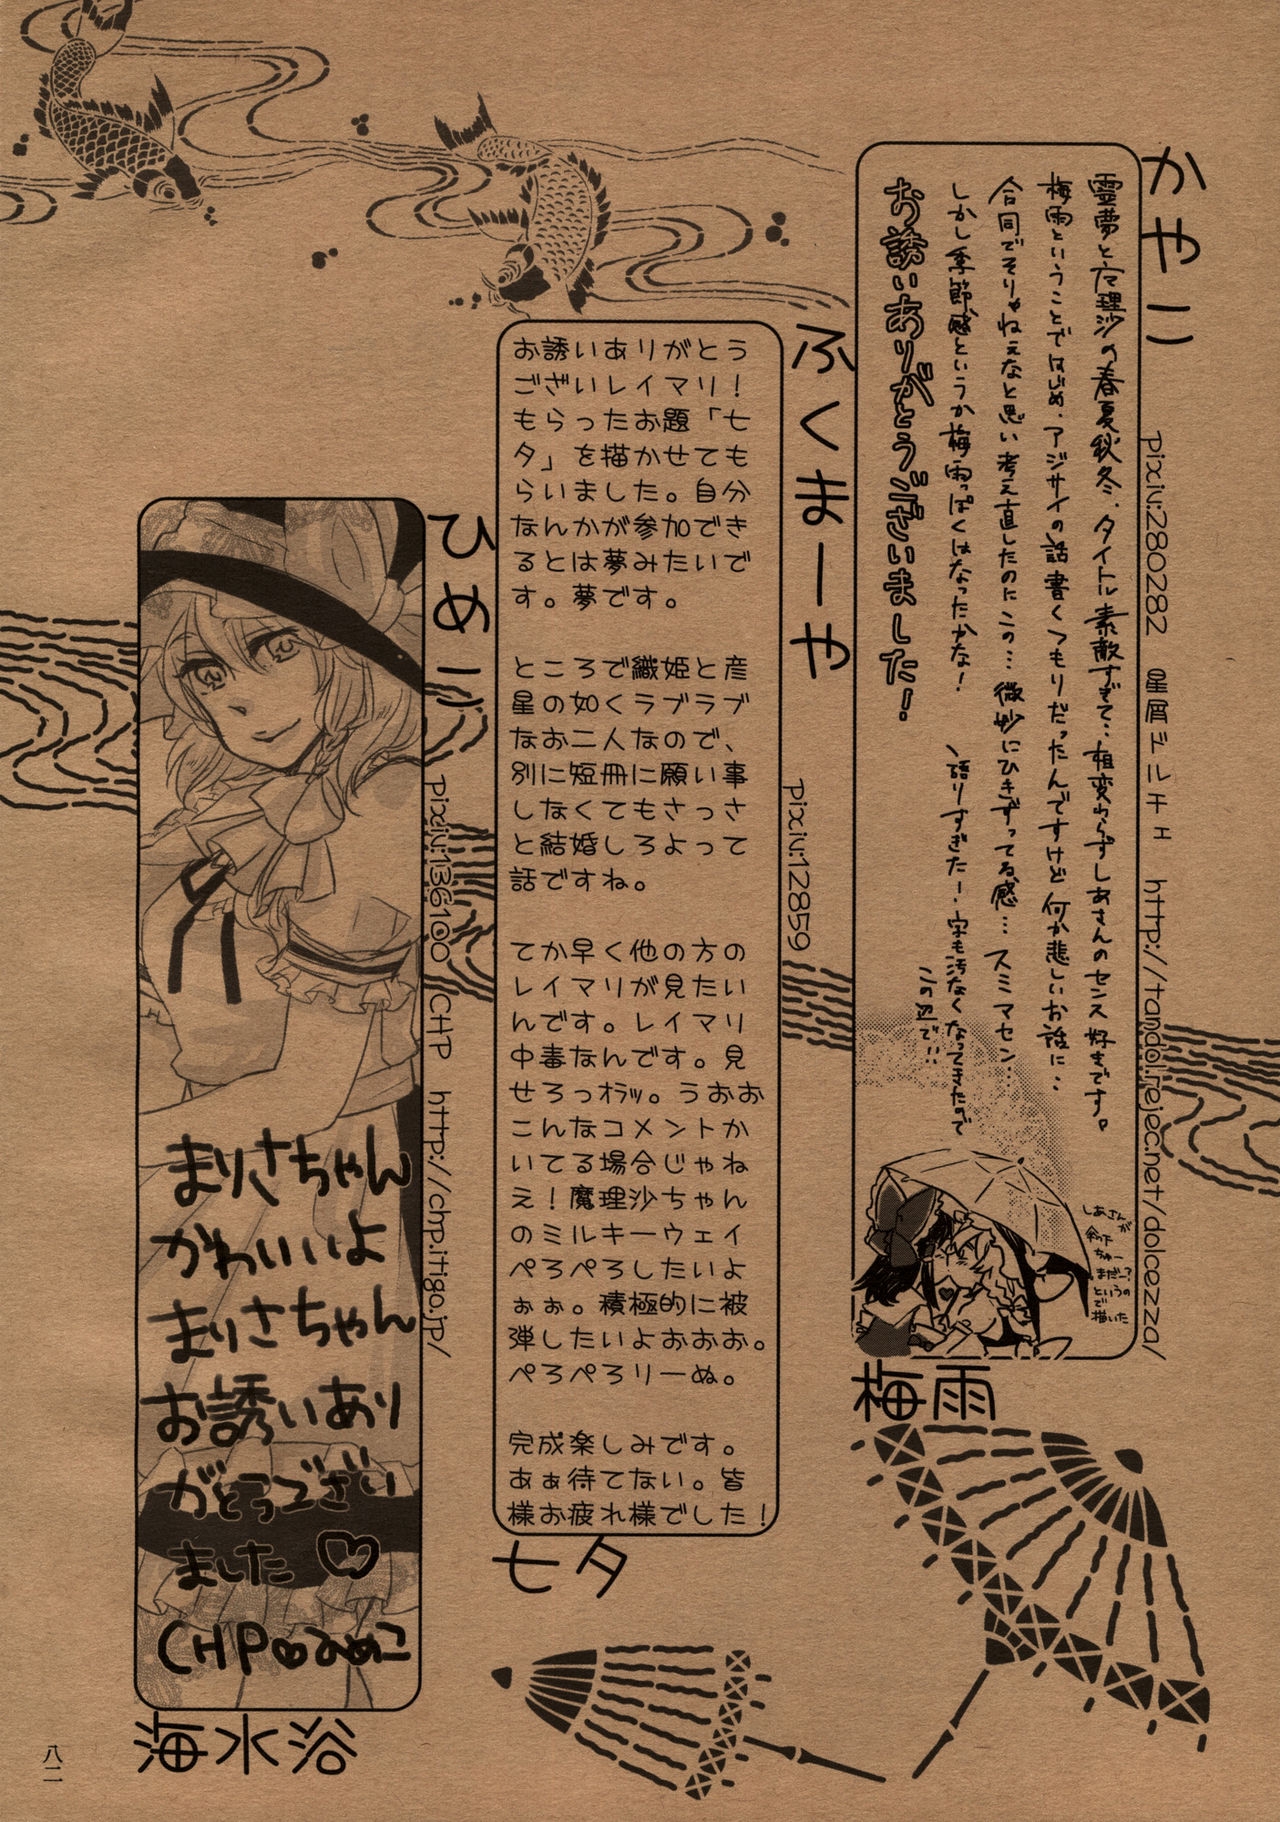 かやこ
pixiv:280282　星屑ドルチェ　http://tandol.rejec.net/dolcezza/
霊夢と魔理沙の春夏秋冬、タイトル素敵すぎて…相変わらずしあさんのセンス好きです。
梅雨ということではじめ、アジサイの話書くつもりだったんですけど何か悲しいお話に…
合同でそりゃねえなと思い考え直したのにこの…微妙にひきずってる感…スミマセン…
しかし季節感というか梅雨っぽくはなったかな！
語りすぎたー・字も汚なくなってきたので
この辺で…
お誘いありがとうございました！
しあさんが
というの
で
描いた
梅雨
ふくまーや
pixiv:12859
お誘いありがとう
ございレイマリ！
もらったお題「七
夕」を描かせても
らいました。自分
なんかが参加でき
るとは夢みたいで
す。夢です。
ところで織姫と彦
星の如くラブラブ
なお二人なので、
別に短冊に願い事
しなくてもさっさ
と結婚しろよって
話ですね。
てか早く他の方の
レイマリが見たい
んです。レイマリ
中毒なんです。見
せろっオラッ。うおお
こんなコメントか
いてる場合じゃね
え！魔理沙ちゃん
のミルキーウェイ
ぺろぺろしたいよ
ぉぉ。積極的に被
弾したいよおおお。
ぺろぺろりーぬ。
完成楽しみです。
あぁ待てない。皆
様お疲れ様でした！
七夕
ひめこ
pixiv:136100　CHP　http://chp.itigo.jp/
まりさちゃん
かわいいよ
まりさちゃん
お誘いあり
がとうござい
ました♡
CHP♡ひめこ
海水浴
八二